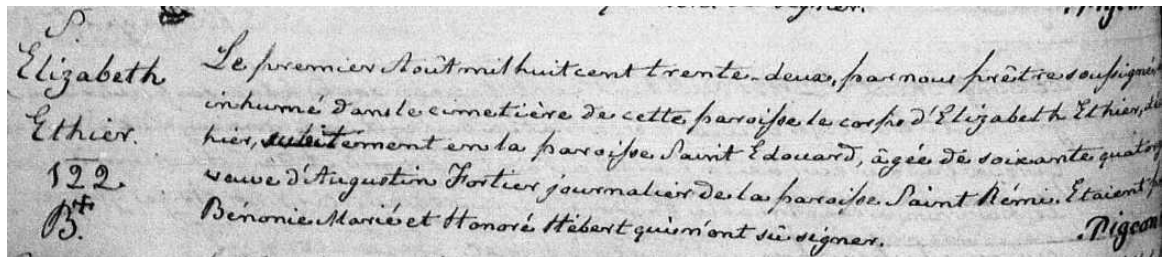 signer. Pigeon
S.
Elizabeth
Ethier.
122
B.
Le premier Août mil huit cent trente-deux, par nous prêtre soussigné
inhumé dans le cimetière de cette paroisse le corps d'Elizabeth Ethier, dé
hier, subitement en la paroisse Saint Edouard, âgée de soixante quatorze
veuve d'Augustin Fortier journalier de la paroisse Saint Rémi. Etaient
Bénonie Marié et Honoré Hébert qui n'ont sû signer. Pigeon